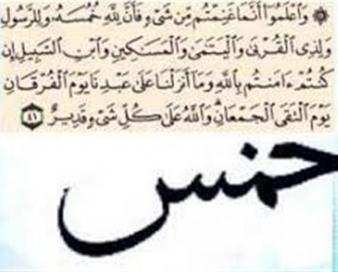 ۞ وَاعْلَمُوا أَنَّمَا غَنِمْتُم مِّن شَىْءٍ فَأَنَّ لِلَّهِ خُمُسَهُ وَلِلرَّسُولِ
وَلِذِى الْقُرْبَىٰ وَالْيَتَامَىٰ وَالْمَسَاكِينِ وَابْنِ السَّبِيلِ إِن
كُنتُمْ ءَامَنتُم بِاللَّهِ وَمَا أَنزَلْنَا عَلَىٰ عَبْدِنَا يَوْمَ الْفُرْقَانِ
يَوْمَ الْتَقَى الْجَمْعَانِ وَاللَّهُ عَلَىٰ كُلِّ شَىْءٍ قَدِيرٌ ٤١
خمس